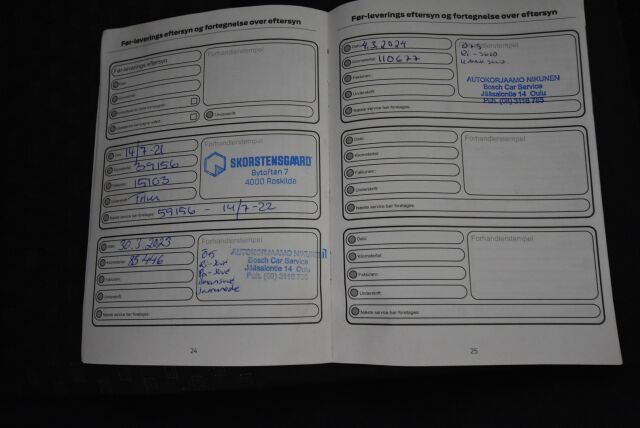 Før-leverings eftersyn og fortegnelse over eftersyn
Før-leverings eftersyn
Forhandlerstempel
Underskrift:
Dato: 14/7-21
Kilometertal: 39156
Fakturanr.: 15103
Underskrift:
Næste service bør foretages: 59156 - 14/7-22
Forhandlerstempel
SKORSTENSGAARD
Bytoften 7
4000 Roskilde
Dato: 30.3.2023
Kilometertal: 85446
Fakturanr.:
Underskrift:
Næste service bør foretages:
Forhandlerstempel
AUTOKORJAAMO NIKUNEN
Bosch Car Service
Jääsalontie 14 Oulu
Puh. (08) 3116 785
24
Før-leverings eftersyn og fortegnelse over eftersyn
Dato: 4.3.2024
Kilometertal: 110677
Fakturanr.:
Underskrift:
Næste service bør foretages:
AUTOKORJAAMO NIKUNEN
Bosch Car Service
Jääsalontie 14 Oulu
Puh. (08) 3116 785
Dato:
Kilometertal:
Fakturanr.:
Underskrift:
Næste service bør foretages:
Forhandlerstempel
Dato:
Kilometertal:
Fakturanr.:
Underskrift:
Næste service bør foretages:
Forhandlerstempel
25